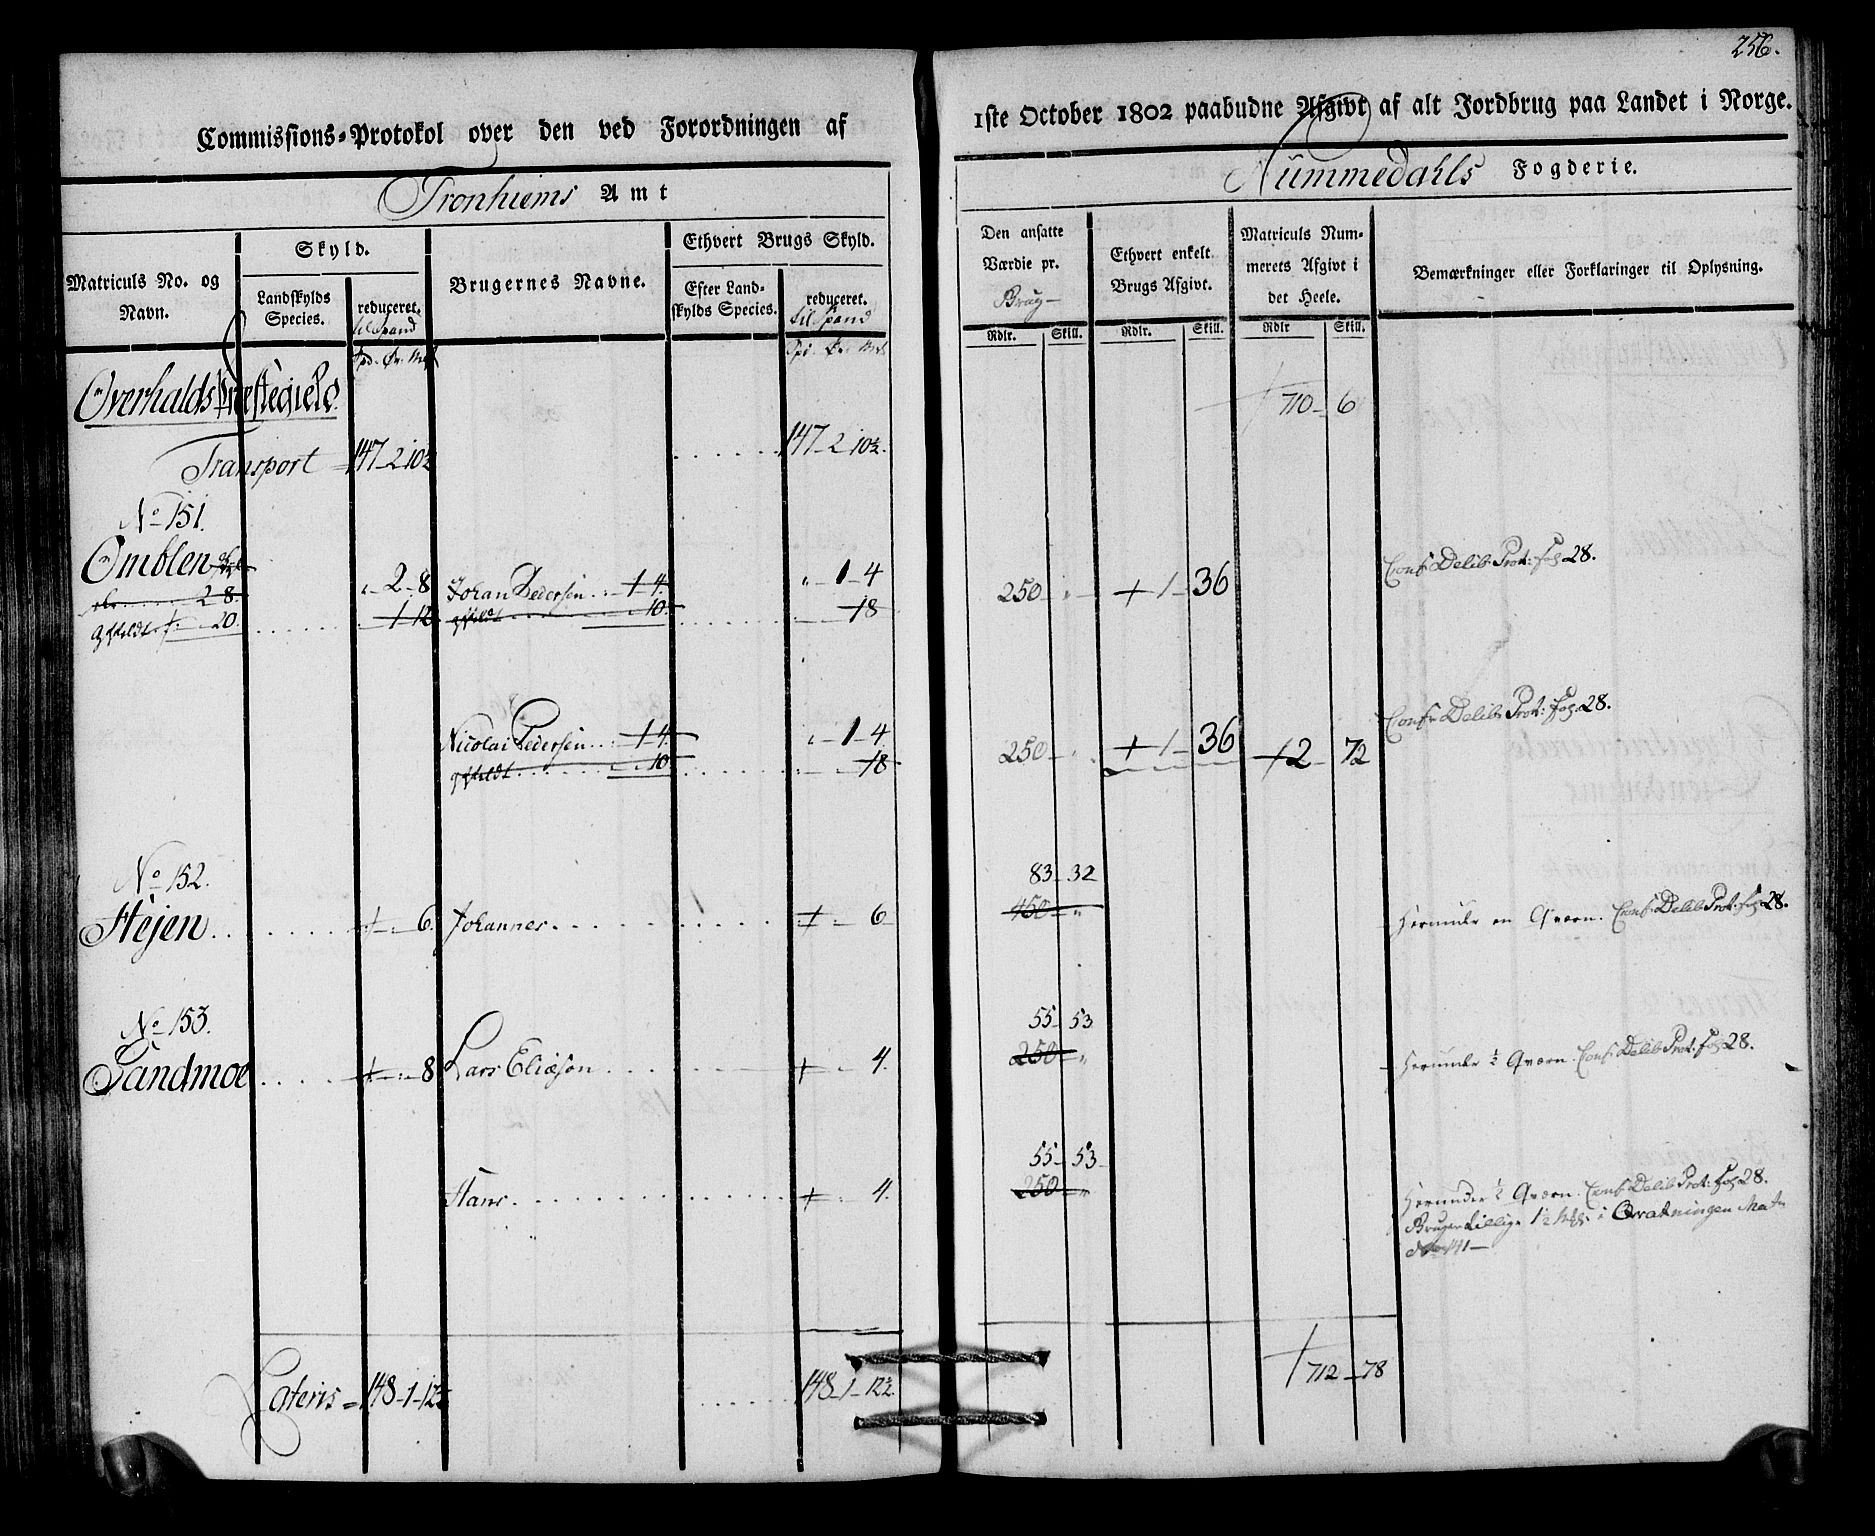 256.
Commissions-Protokol over den ved Forordningen af 1ste October 1802 paabudne Afgivt af alt Jordbrug paa Landet i Norge.
Tronhiems Amt
Nummedahls Fogderie.
Matriculs No. og Navn.
Skyld.
Landskylds Species.
reduceret.
til Spand
Brugernes Navne.
Ethvert Brugs Skyld.
Efter Landskylds Species.
reduceret.
til Spand
Den ansatte Værdie pr. Brug
Ethvert enkelt Brugs Afgivt.
Matriculs Nummerets Afgivt i det Heele.
Bemærkninger eller Forklaringer til Oplysning.
Rdlr. Skill. Rdlr. Skill. Rdlr Skill.
Overhalds Præstegield
710 - 6
Transport = 147 - 2 10½ 147 - 2 - 10½.
No 151.
Omblen
2 - 8 Johan Pedersen 1 4. 1 - 4 250 1 - 36 Conf: Delib: Prot: fol 28.
2 8.
20. 1 - 12 10. 18
Nicolai Pedersen 1 4. 1 - 4 250 1 - 36 2 - 72 Conf: Delib: Prot: fol. 28.
10 18
No 152.
83 - 32
Hejen 6. Johannes 6 450 Herunder en Qværn. Conf: Delib: Prot: fol 28.
No 153.
55 - 53
Sandmoe 8 Lars Eliæson 4. 250 Herunder ½ Qværn. Conf: Delib: Prot: fol 28.
55 - 53
Hans 4. 250 Herunder ½ Qværn. Conf: Delib: Prot: fol 28.
Bruger tillige 1½ i Matr
No 141
Lateris = 148 - 1 - 12½ 148 - 1 - 12½. 712 - 78